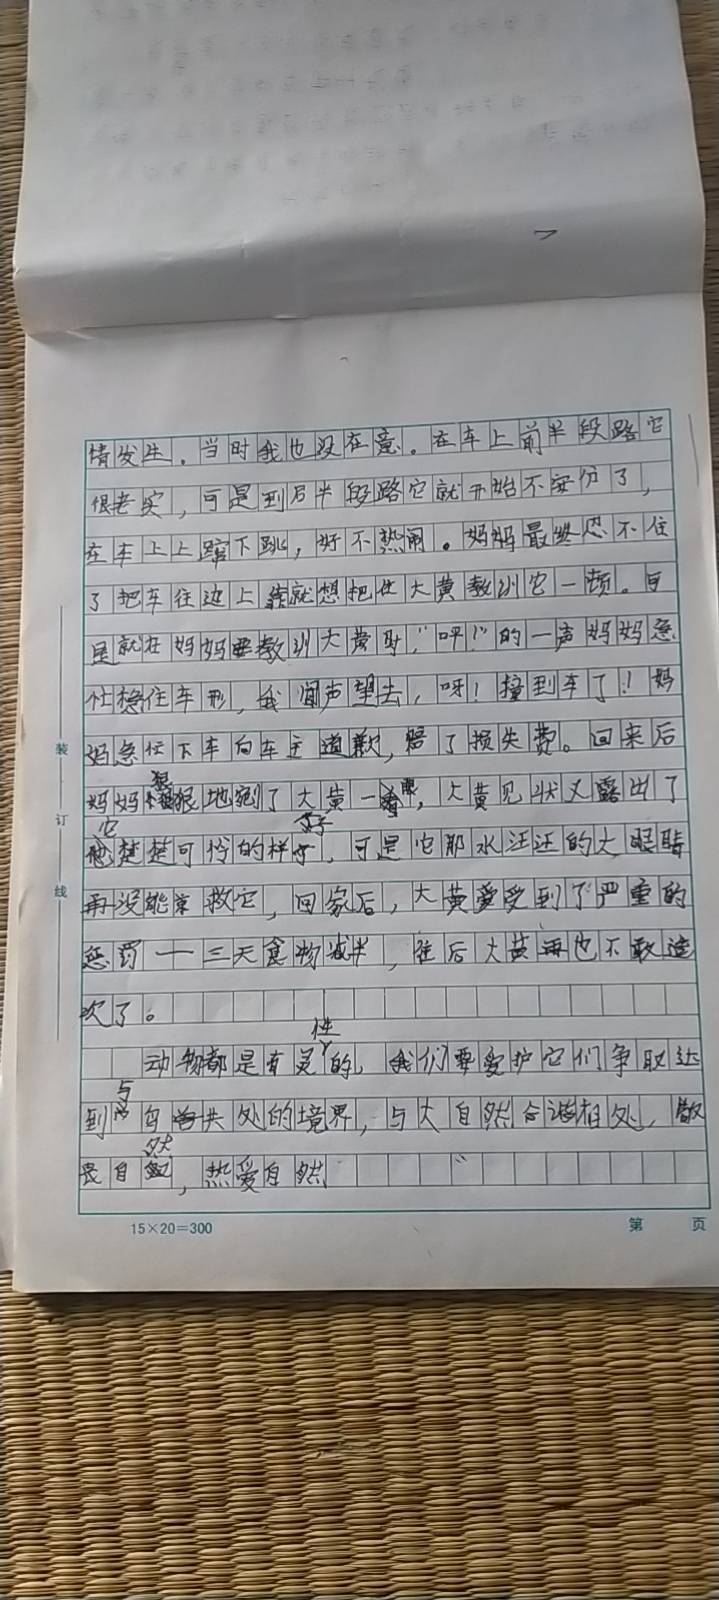 情发生.当时我也没在意.在车上前半段路它
很老实,可是到后半段路它就开始不安分了,
在车上上蹿下跳,好不热闹。妈妈最终忍不住
了把车往边上靠就想把住大黄教训它一顿。可
是就在妈妈要教训大黄时,“呯!”的一声妈妈急
忙稳住车形,我闻声望去,呀!撞到车了!妈
妈急忙下车向车主道歉,赔了损失费。回来后
妈妈狠狠地剜了大黄一眼,大黄见状又露出了
它楚楚可怜的样子,可是它那水汪汪的大眼睛
再没能来救它,回家后,大黄受到了严重的
惩罚——三天食物减半,往后大黄再也不敢造
次了。
动物都是有灵性的,我们要爱护它们争取达
到与鸟兽共处的境界,与大自然合谐相处,敬
畏自然,热爱自然
装
订
线
15×20=300
第 页